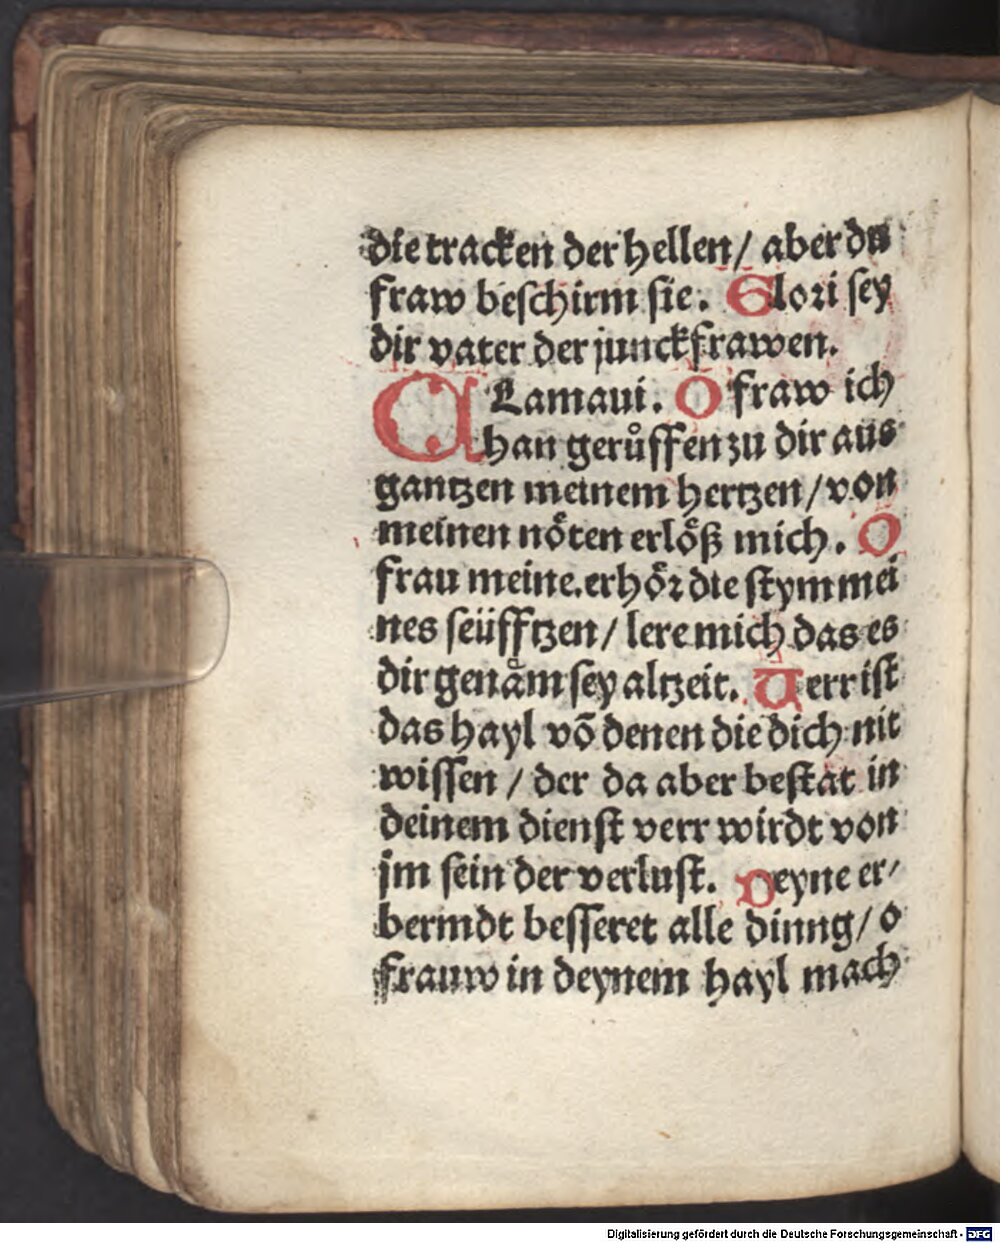 die tracken der hellen / aber du
fraw beschirm sie. Glori sey
dir vater der junckfrawen.
CLamaui. O fraw ich
han gerůffen zu dir aus
gantzen meinem hertzen / von
meinen nöten erlöß mich. O
frau meine. erhör die stym mei
nes seüfftzen / lere mich das es
dir genäm sey altzeit. Verr ist
das hayl võ denen die dich nit
wissen / der da aber bestat in
deinem dienst verr wirdt von
jm sein der verlust. Deyne er/
bermdt besseret alle dinng / o
frauw in deynem hayl mach
Digitalisierung gefördert durch die Deutsche Forschungsgemeinschaft - DFG